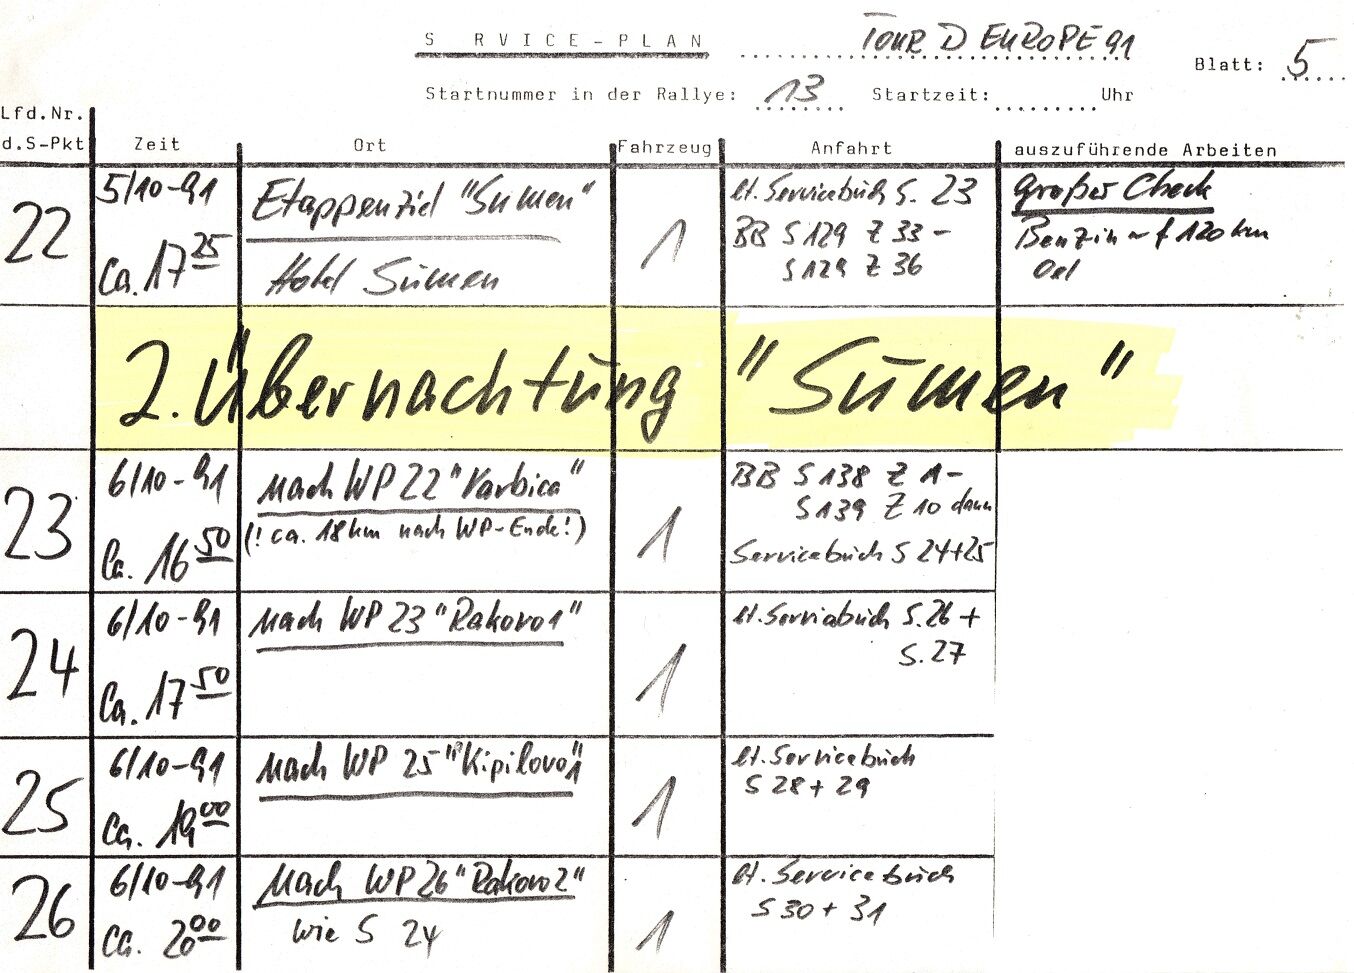 S RVICE-PLAN TOUR D EUROPE 91
Blatt: 5
Startnummer in der Rallye: 13 Startzeit: Uhr
Lfd.Nr.
d.S-Pkt Zeit Ort Fahrzeug Anfahrt auszuführende Arbeiten
22 5/10-91 Etappenziel "Sumen" 1 lt. Servicebuch S. 23 großer Check
ca. 17 25 Hotel Sumen BB S 129 Z 33 - Benzin ~ f 120 km
S 129 Z 36 Oel
2. Übernachtung "Sumen"
23 6/10-91 nach WP 22 "Varbica" 1 BB S 138 Z 1 -
(! ca. 18 km nach WP-Ende!) S 139 Z 10 dann
ca. 16 50 Servicebuch S 24+25
24 6/10-91 nach WP 23 "Rakovo 1" 1 lt. Servicebuch S. 26 +
S. 27
ca. 17 50
25 6/10-91 nach WP 25 "Kipilovo 1" 1 lt. Servicebuch
S 28 + 29
ca. 19 00
26 6/10-91 nach WP 26 "Rakovo 2" 1 lt. Servicebuch
ca. 20 00 wie S 24 S 30 + 31